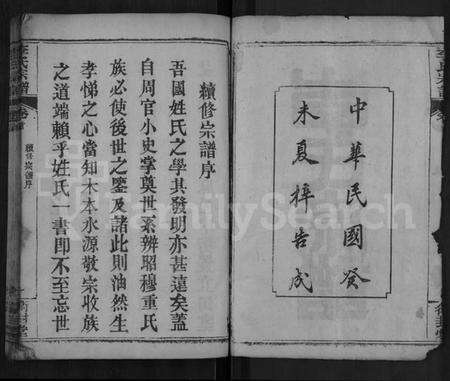 中華民國癸
未夏梓告成
續修宗譜序
吾國姓氏之學其發明亦甚遠矣蓋
自周官小史掌奠世系辨昭穆重氏
族必使後世之鑒及諸此則油然生
孝悌之心當知木本水源敬宗收族
之道端賴乎姓氏一書即不至忘世
李氏宗譜
續修宗譜序
FamilySearch